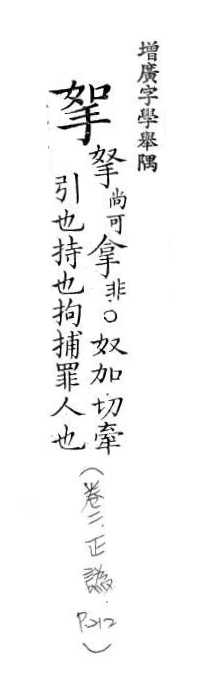 增廣字學舉隅
挐
拏尚可拿非○奴加切牽
引也持也拘捕罪人也
(卷二.正譌.P.212)